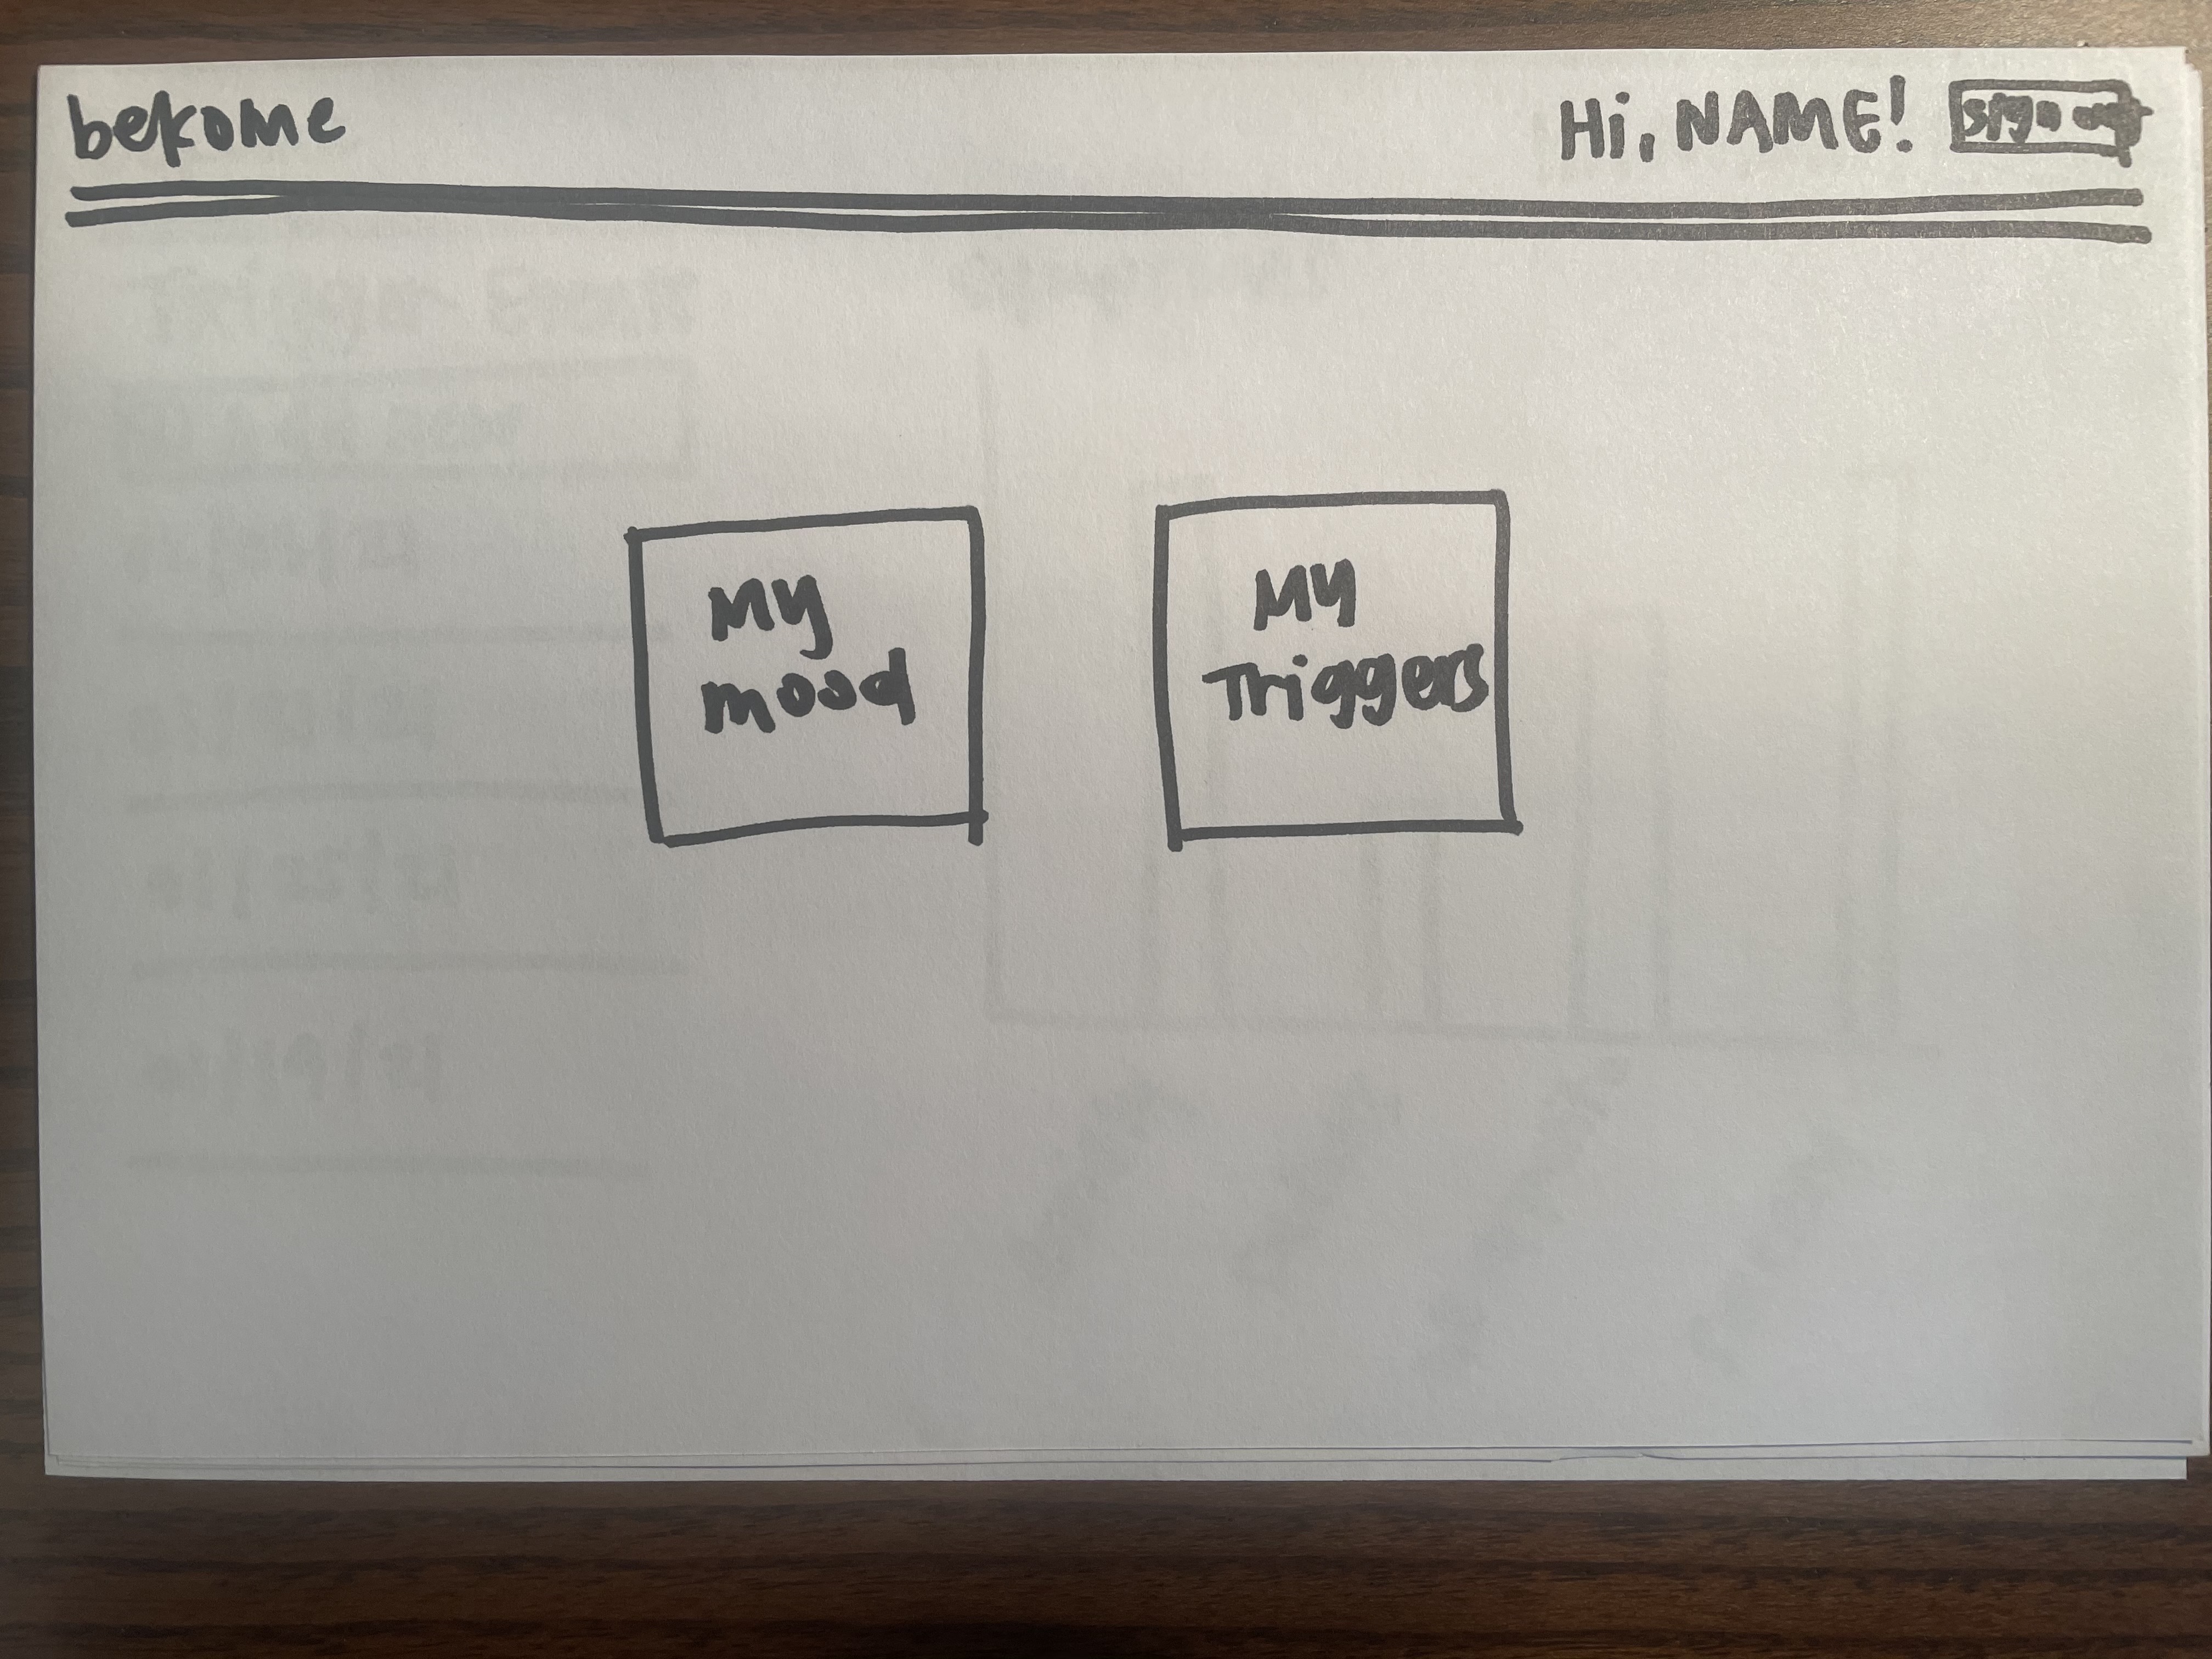 bekome
Hi, NAME! sign out
My
mood
My
Triggers